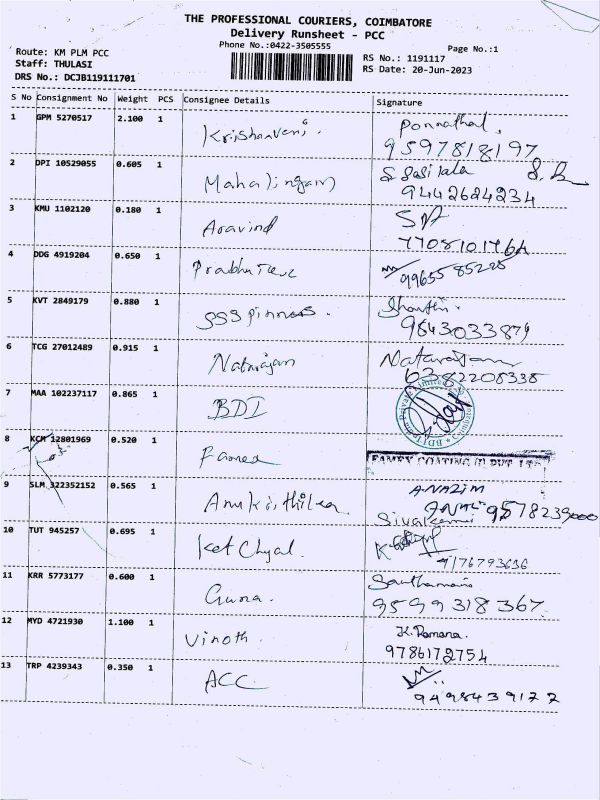 THE PROFESSIONAL COURIERS, COIMBATORE
Delivery Runsheet - PCC
Phone No.:0422-3505555
Page No.:1
Route: KM PLM PCC
RS No.: 1191117
Staff: THULASI
RS Date: 20-Jun-2023
DRS No.: DCJB119111701
S No Consignment No Weight PCS Consignee Details Signature
1 GPM 5270517 2.100 1 Krishnaveni Ponnathal
9597818197
2 DPI 10529055 0.605 1 Mahalingam S. Sasikala
9442624234
3 KMU 1102120 0.180 1 Aravind
4 DDG 4919204 0.650 1
99655 85228
5 KVT 2849179 0.880 1
9843033879
6 TCG 27012489 0.915 1 Natarajan Natarajan
6382208338
7 MAA 102237117 0.865 1 BDI
8 KCM 12801969 0.520 1
9 SLM 322352152 0.565 1 A.NAZIM
9578239000
10 TUT 945257 0.695 1
9176793636
11 KRR 5773177 0.600 1 Guna.
9599318367
12 MYD 4721930 1.100 1 Vinoth. K. Ramana.
9786172754
13 TRP 4239343 0.350 1 ACC.
9498439177